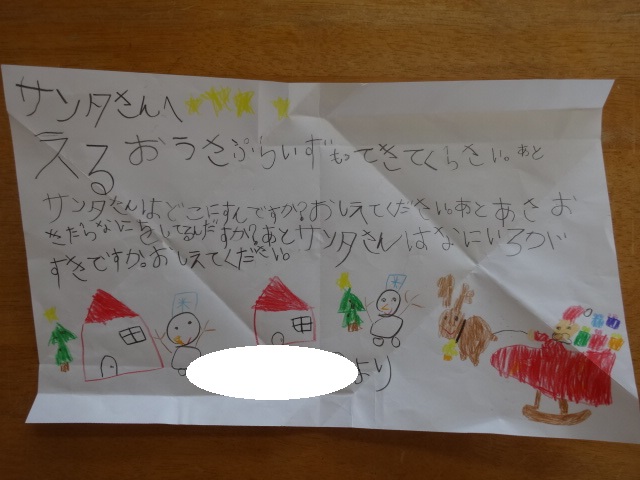 サンタさんへ
えるおうさぷらいずもってきてくらさい。あと
サンタさんはどこにすんですか?おしえてください。あとあさお
きたらなにをしてるんだすか?あとサンタさんはなにいろがい
すきですか。おしえてください。
より